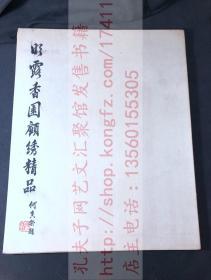 明露香園顧繡精品
孔夫子网艺文汇聚馆发售书籍
https://shop.kongfz.com/17411
店主电话：13560155305